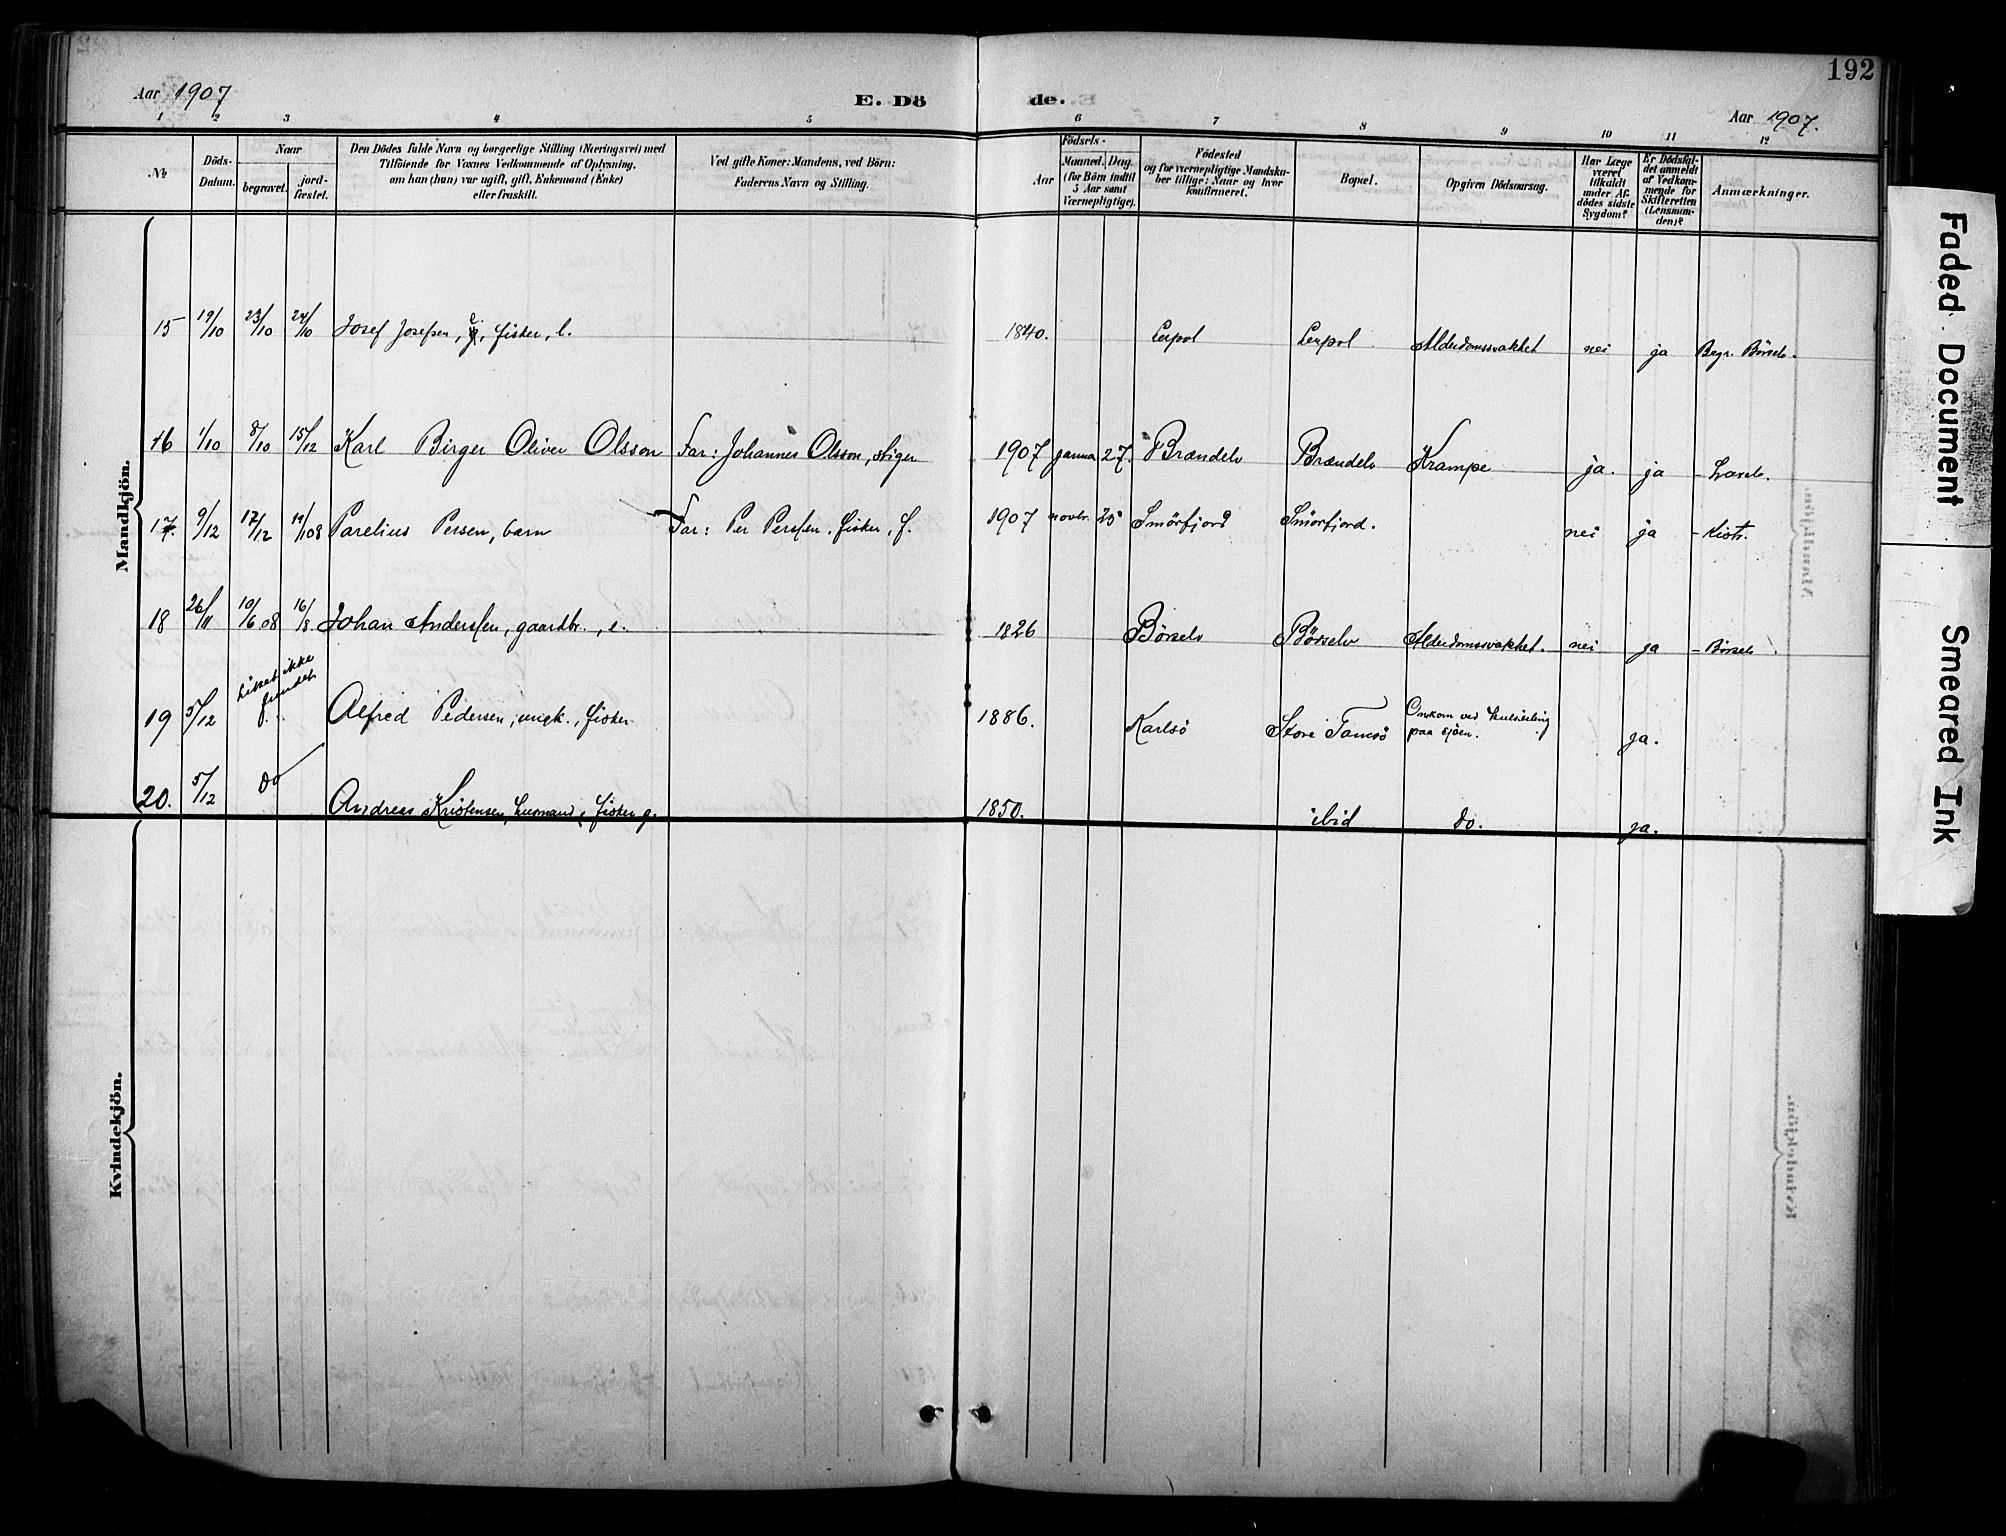 192
Aar 1907
E. Dö
de.
Aar 1907.
1 2 3 4 5 6 7 8 9 10 11 12
№
Döds-
Datum.
Naar
begravet.
jord-
fæstet.
Den Dödes fulde Navn og borgerlige Stilling (Næringsvei) med
Tilföiende for Voxnes Vedkommende af Oplysning,
om han (hun) var ugift, gift, Enkemand (Enke)
eller fraskilt.
Ved gifte Koner: Mandens, ved Börn:
Faderens Navn og Stilling.
Födsels-
Aar
Maaned. Dag.
(for Börn indtil
5 Aar samt
Værnepligtige).
Födested
og for værnepligtige Mandska-
ber tillige: Naar og hvor
konfirmeret.
Bopæl.
Opgiven Dödsaarsag.
Har Læge
været
tilkaldt
under Af-
dödes sidste
Sygdom?
Er Dödsfal-
det anmeldt
af Vedkom-
mende for
Skifteretten
(Lensman-
den)?
Anmærkninger.
Mandkjön.
15 19/10 23/10 24/10 Josef Josefsen, fisker, l. 1840. Leirpol Leirpol Alderdomssvakhet nei ja Begr. Börselv.
16 1/10 8/10 15/12 Karl Birger Oliver Olsson Far: Johannes Olsson, stiger 1907 januar 27. Brændelv Brændelv Krampe ja. ja - Laxelv.
17. 9/12 17/12 19/1 08 Parelius Persen, barn Far: Per Perssen, fisker, f. 1907 novbr. 25 Smörfjord Smörfjord. nei ja - Kistr.
18 26/11 10/6 08 16/8 Johan Anderssen, gaardbr., e. 1826 Börselv Börselv Alderdomssvakhet. nei ja - Börselv.
19 5/12 Liket ikke
fundet Alfred Pedersen, ungk., fisker 1886. Karlsö Store Tamsö Omkom ved kulseiling
paa sjöen. ja.
20. 5/12 Do Andreas Kristensen, husmand, fisker g. 1850. ibid do. ja.
Kvindekjön.
Faded Document
Smeared Ink